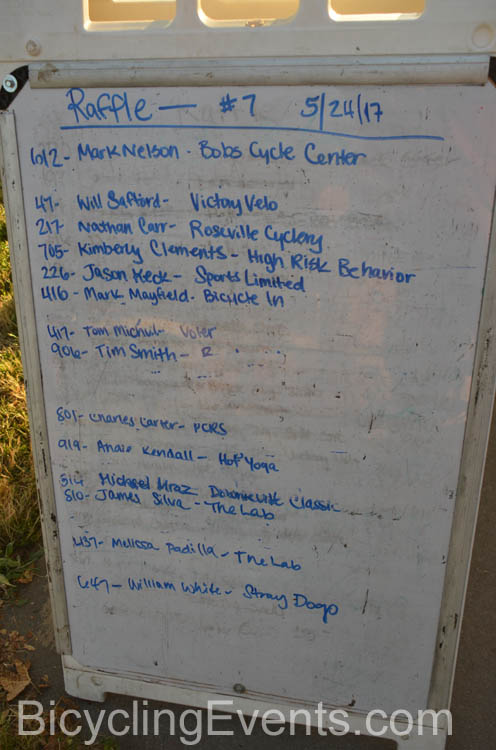 Raffle — #7 5/24/17
612- Mark Nelson - Bobs Cycle Center
47- Will Safford- Victory Velo
217- Nathan Carr- Roseville Cyclery
705- Kimberly Clements - High Risk Behavior
226- Jason Keck- Sports Limited
416- Mark Mayfield- Bicycle In
417- Tom Voler
906- Tim Smith-
801- Charles Carter- PCRS
919- Kendall- Hot Yoga
Michael Mraz Classic
810- James Silva - The Lab
437- Melissa Padilla - The Lab
647- William White - Stray Dogs
BicyclingEvents.com